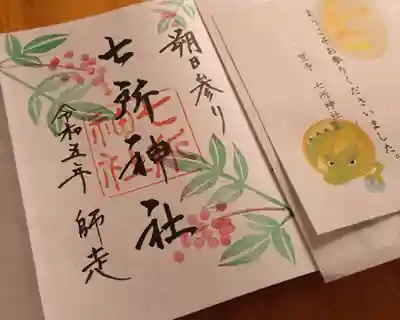 朔日参り
七所神社
令和五年 師走
七所
神社
ようこそお参りくださいました。
七所神社